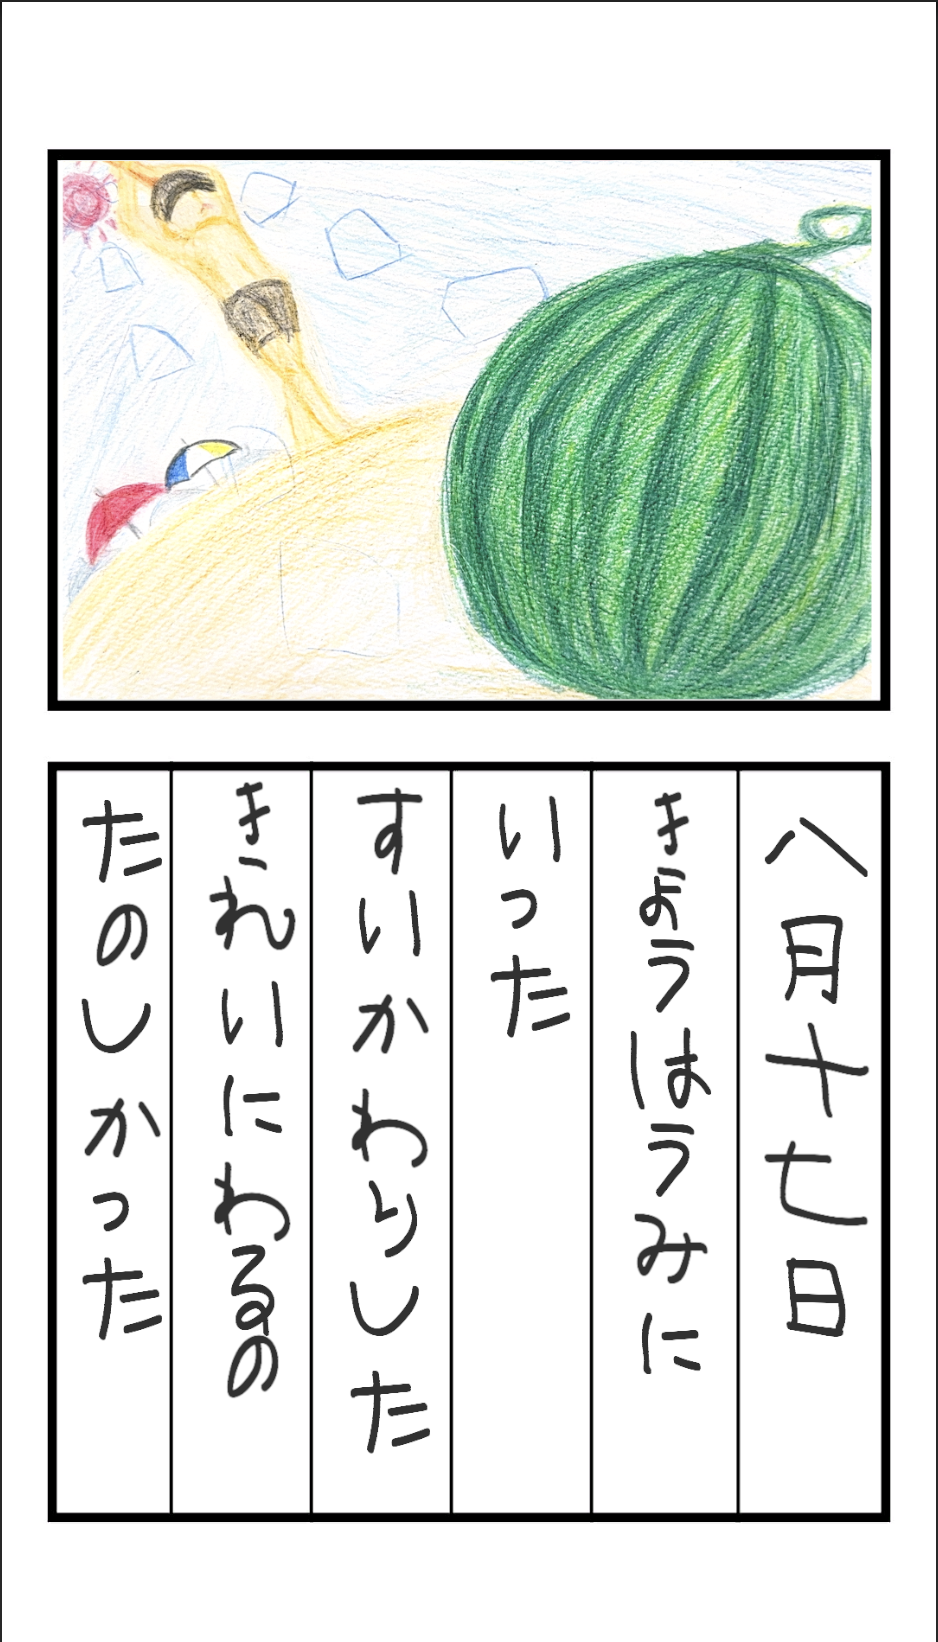 八月十七日
きょうはうみに
いった
すいかわりした
きれいにわるの
たのしかった